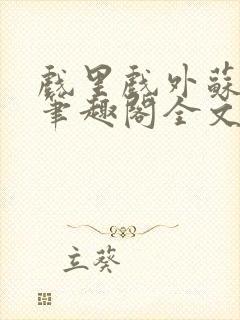 戲里戲外蘇
筆趣閣全文
立葵